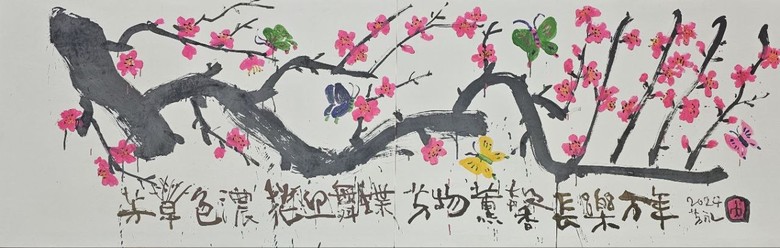 芳草色濃花迎舞蝶 芳物薰馨長樂万年
2024